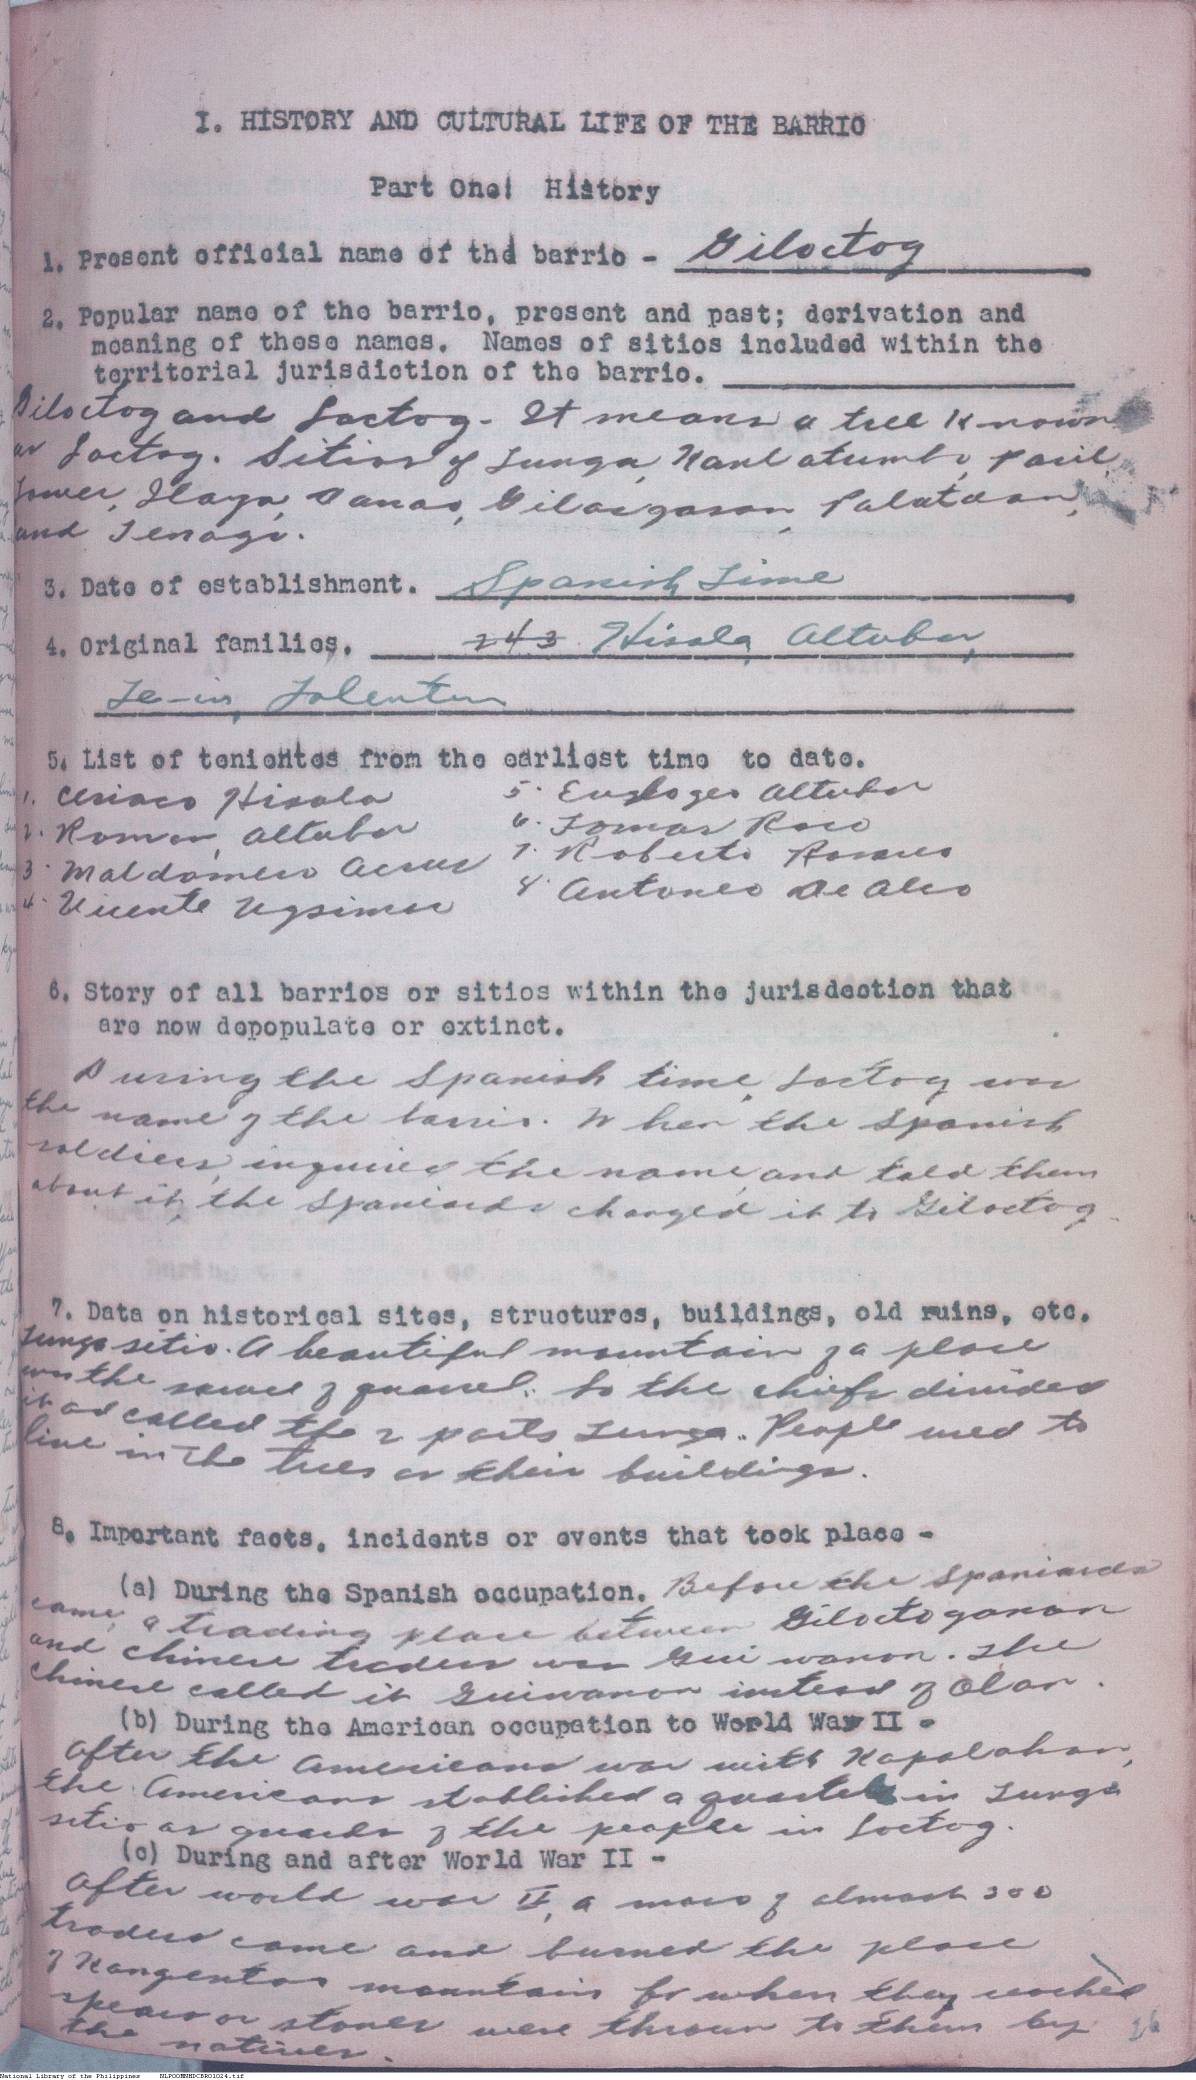 I. HISTORY AND CULTURAL LIFE OF THE BARRIO
Part One! History
1. Present official name of the barrio - Giloctog
2. Popular name of the barrio, present and past; derivation and
meaning of these names. Names of sitios included within the
territorial jurisdiction of the barrio.
Giloctog and Loctog. It means a tree known
as Loctog. Sitios of Tunga,
Ilaya, Danao,
and
3. Date of establishment. Spanish Time
4. Original families. 243 Hisola, Altubar,
Tolentin
5. List of tenientes from the earliest time to date.
1. Ceriaco Hisola
2. Roman Altubar
3. Maldomero
4. Vicente
5. Altubar
6. Tomas Roco
7. Roberto
8. Antoneo De Alco
6. Story of all barrios or sitios within the jurisdection that
are now depopulate or extinct.
During the Spanish time, Loctog was
the name of the barrio. When the Spanish
soldiers, inquired the name, and told them
about it, the Spaniards changed it to Giloctog.
7. Data on historical sites, structures, buildings, old ruins, etc.
Tunga sitio. A beautiful mountain of a place
was the source of quarrel. So the chiefs divided
it and called the 2 parts Tunga. People used to
live in the trees as their buildings.
8. Important facts, incidents or events that took place -
(a) During the Spanish occupation. Before the Spaniards
came, a trading place between Giloctoganon
and chinese traders was Guiwanon. The
chinese called it Guiwanon instead of Olan.
(b) During the American occupation to World War II -
After the Americans war with Kapolahan,
the Americans stablished a quartel in Tunga
sitio as guards of the people in Loctog.
(c) During and after World War II -
After world war II, a mass of almost 300
traders came and burned the place
of Kangentas mountain for when they reached
spears or stones were thrown to them by
the natives.
26
National Library of the Philippines NLPOOMNHDCBRO1024.tif